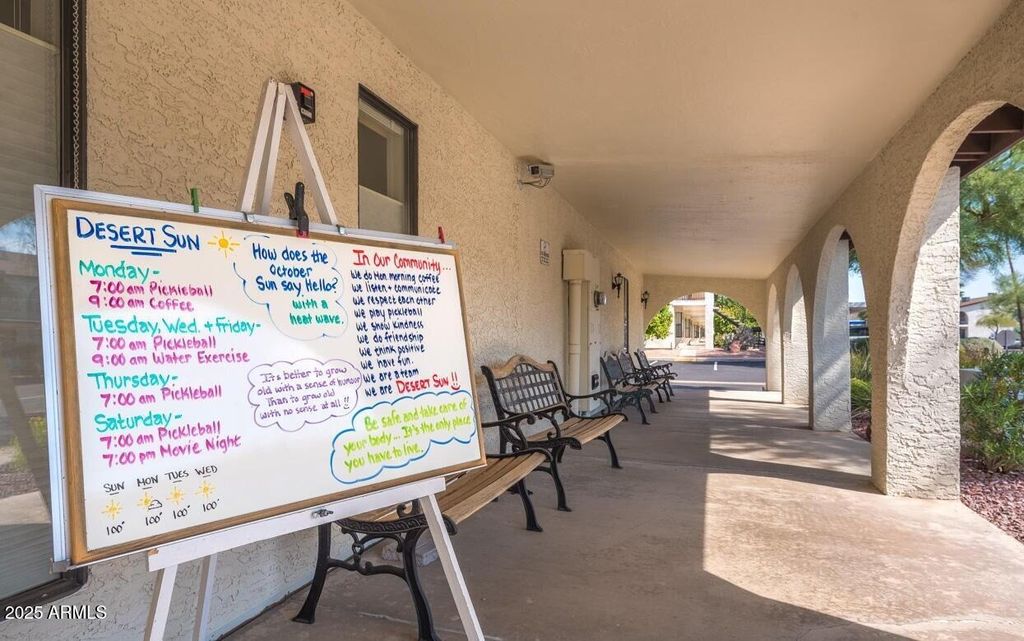 DESERT SUN
Monday-
7:00 am Pickleball
9:00 am Coffee
Tuesday, Wed. + Friday-
7:00 am Pickleball
9:00 am Water Exercise
Thursday-
7:00 am Pickleball
Saturday-
7:00 am Pickleball
7:00 pm Movie Night
SUN MON TUES WED
100° 100° 100° 100°
How does the
October
Sun say, Hello?
with a
heat wave.
It's better to grow
old with a sense of humour
than to grow old
with no sense at all!!
In Our Community...
we do Mon. morning coffee
we listen + communicate
we respect each other
we play pickleball
we show kindness
we do friendship
we think positive
we have fun.
we are a team
we are DESERT SUN!!
Be safe and take care of
your body... It's the only place
you have to live.
2025 ARMLS